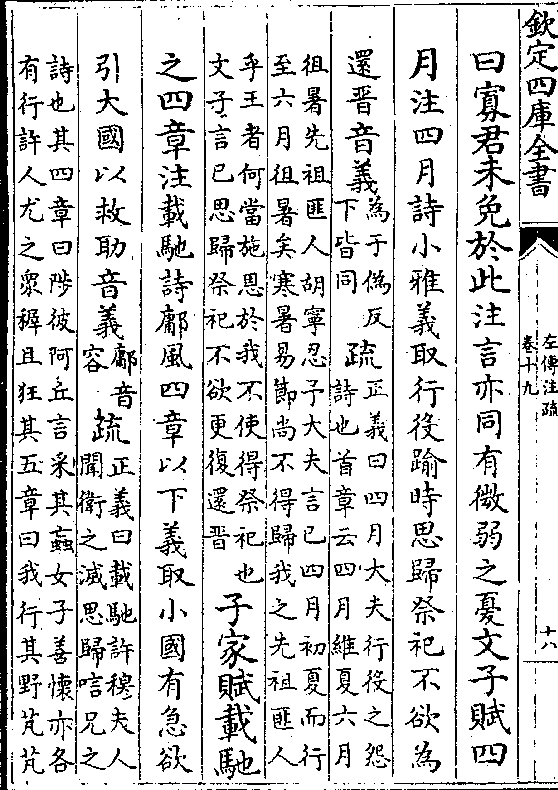 欽定四庫全書
左傳注疏
卷十九
十六
曰寡君未免於此注言亦同有微弱之憂文子賦四
月注四月詩小雅義取行役踰時思歸祭祀不欲為
還晉音義為于偽反
下皆同疏正義曰四月大夫行役之怨
詩也首章云四月維夏六月
徂暑先祖匪人胡寧忍予大夫言已四月初夏而行
至六月徂暑矣寒暑易節尚不得歸我之先祖匪人
乎王者何當施恩於我不使得祭祀也
文子言已思歸祭祀不欲更復還晉子家賦載馳
之四章注載馳詩鄘風四章以下義取小國有急欲
引大國以救助音義鄘音
容疏正義曰載馳許穆夫人
聞衛之滅思歸唁兄之
詩也其四章曰陟彼阿丘言采其蝱女子善懷亦各
有行許人尤之衆穉且狂其五章曰我行其野芃芃